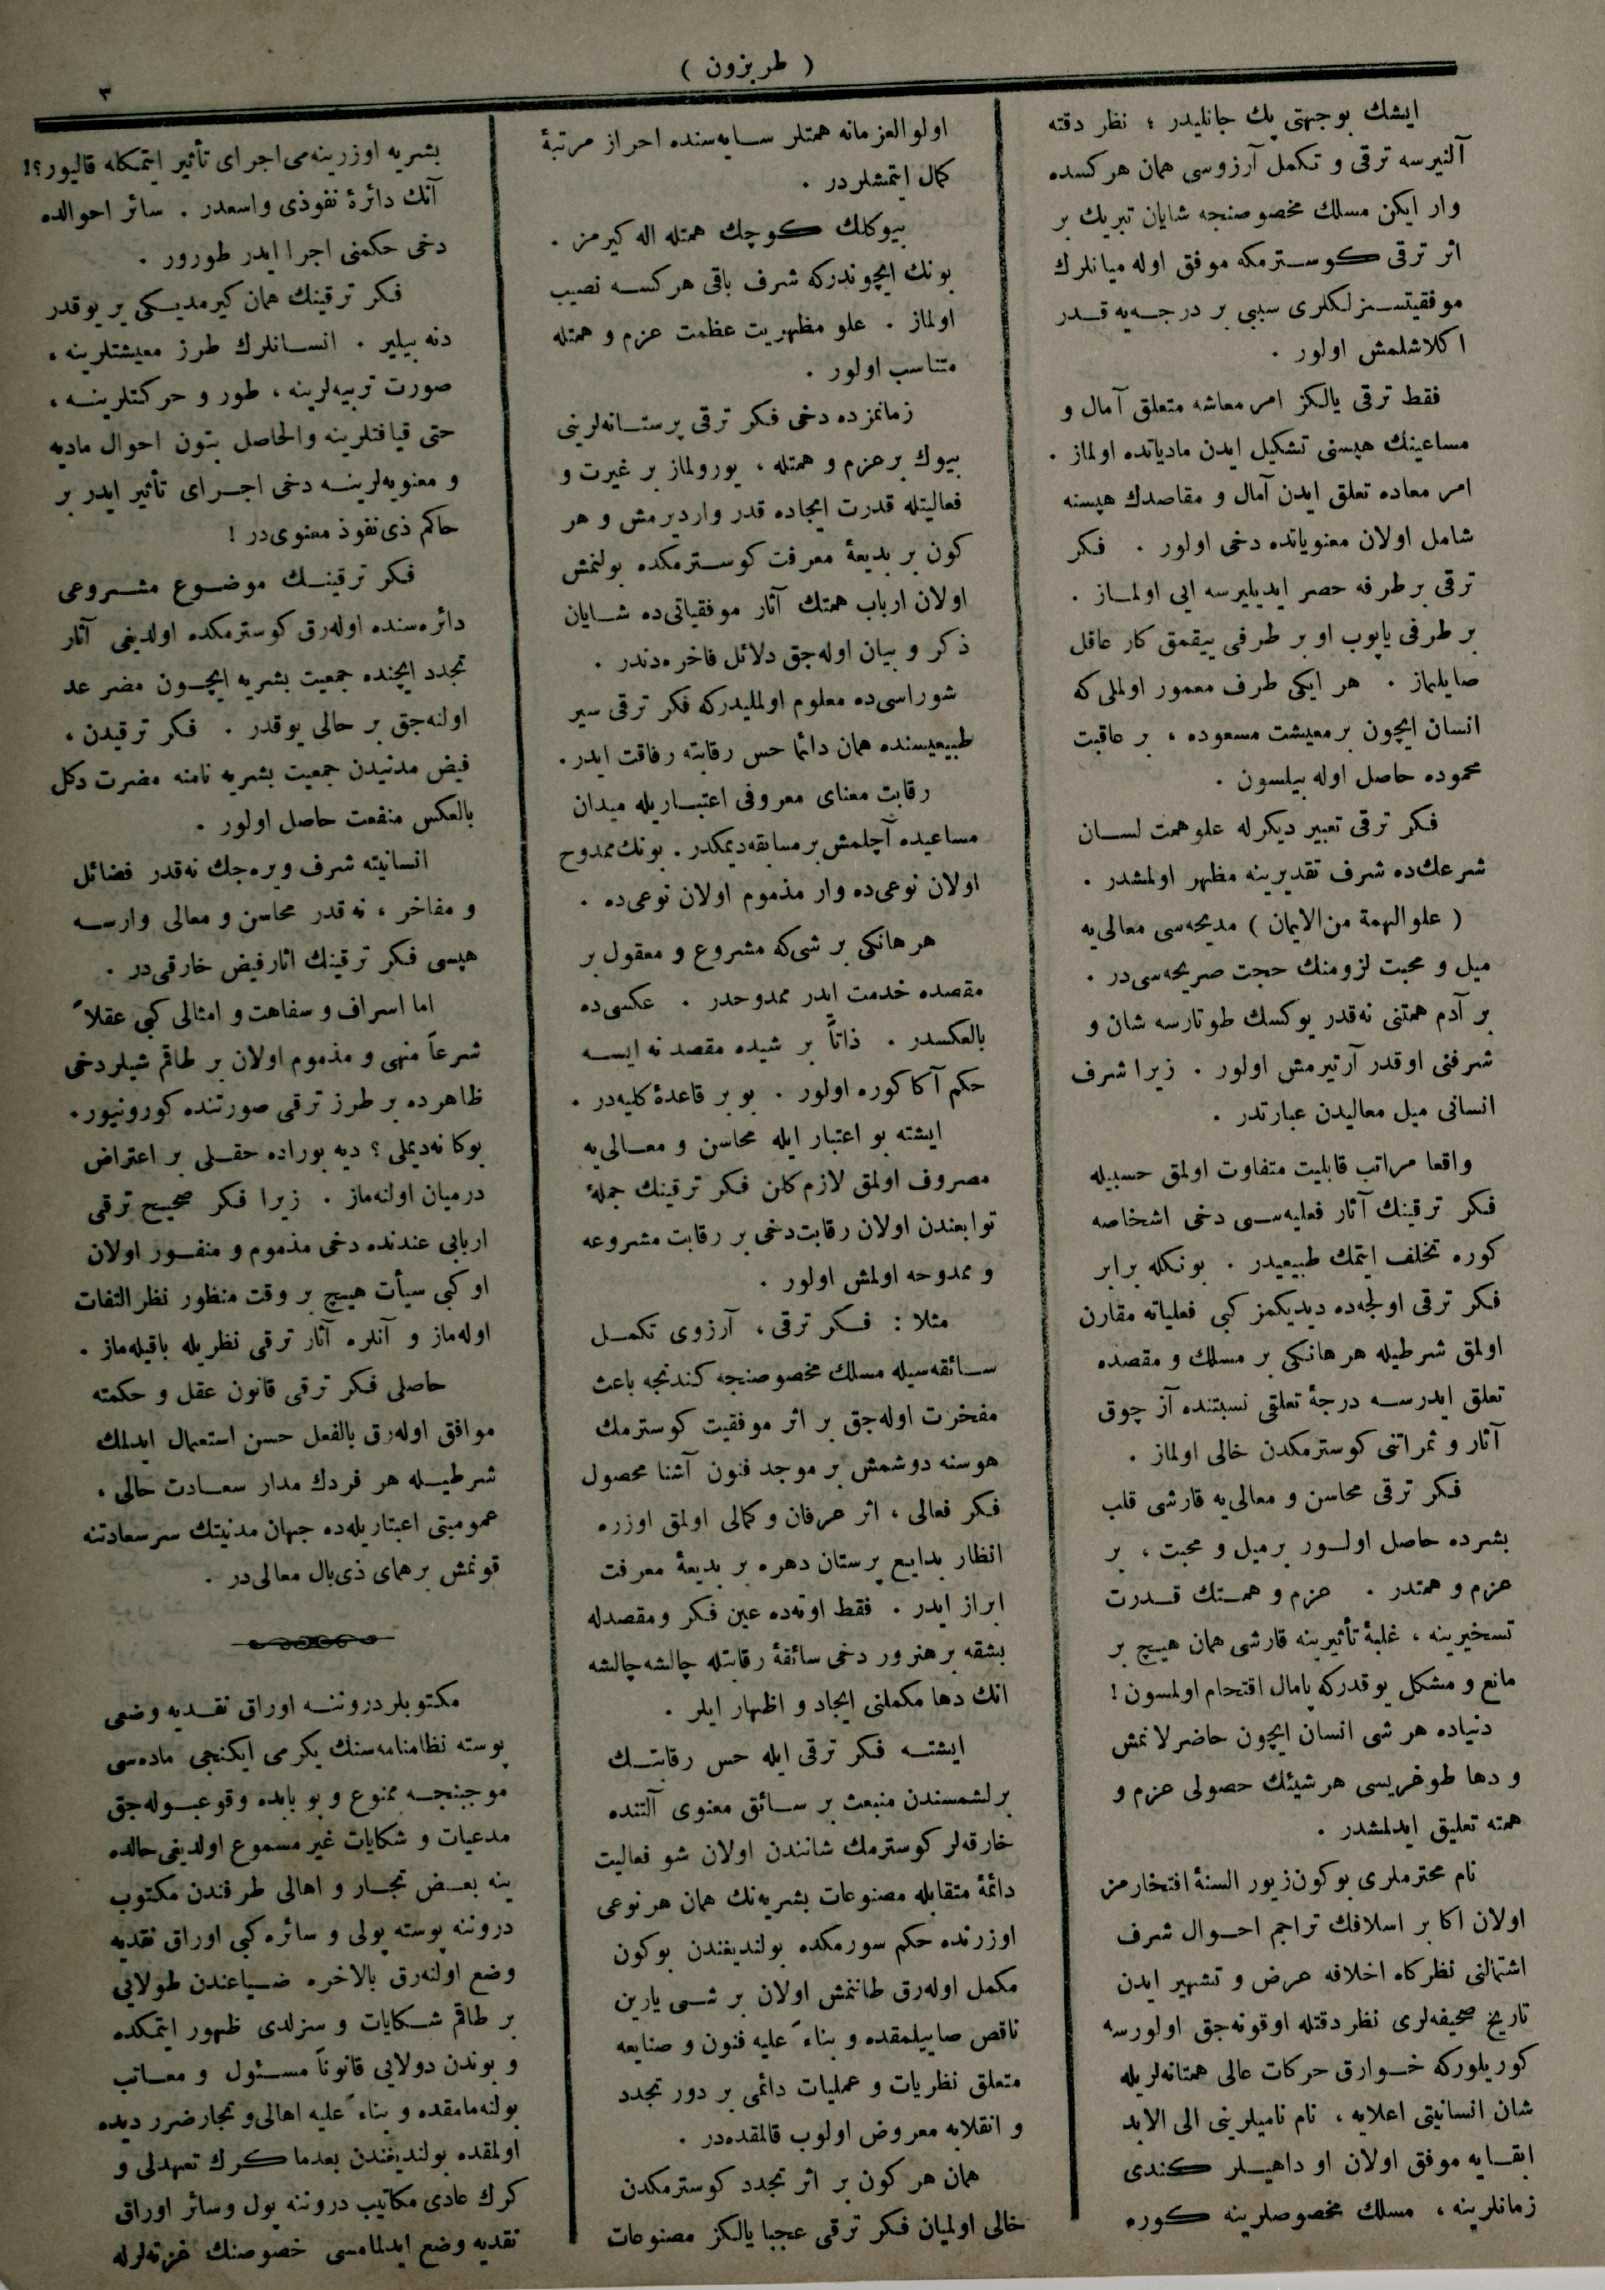 ( طربزون )
٣
ایشك بوجهتی پك جانلیدر ؛ نظر دقته
آلنیرسه ترقی و تكمل آرزوسی همان هركسده
وار ایكن مسلك مخصوصنجه شایان تبریك بر
اثر ترقی كوسترمكه موفق اوله میانلرك
موفقیتسزلكلری سببی بر درجه‌یه قدر
اكلاشلمش اولور .
فقط ترقی یالكز امر معاشه متعلق آمال و
مساعینك هپسنی تشكیل ایدن مادیاتده اولماز .
امر معاده تعلق ایدن آمال و مقاصدك هپسنه
شامل اولان معنویاتده دخی اولور . فكر
ترقی بر طرفه حصر ایدیلیرسه ایی اولماز .
بر طرفی یاپوب او بر طرفی ییقمق كار عاقل
صایلماز . هر ایكی طرف معمور اولملی كه
انسان ایچون بر معیشت مسعوده ، بر عاقبت
محموده حاصل اوله بیلسون .
فكر ترقی تعبیر دیكرله علو همت لسان
شرعك‌ده شرف تقدیرینه مظهر اولمشدر .
( علو الهمة من الایمان ) مدیحه‌سی معالی‌یه
میل و محبت لزومنك حجت صریحه‌سی‌در .
بر آدم همتنی نه‌قدر یوكسك طوتارسه شان و
شرفنی اوقدر آرتیرمش اولور . زیرا شرف
انسانی میل معالیدن عبارتدر .
واقعا مراتب قابلیت متفاوت اولمق حسبیله
فكر ترقینك آثار فعلیه‌سی دخی اشخاصه
كوره تخلف ایتمك طبیعیدر . بونكله برابر
فكر ترقی اولجه‌ده دیدیكمز كبی فعلیاته مقارن
اولمق شرطیله هر هانكی بر مسلك و مقصده
تعلق ایدرسه درجهٔ تعلقی نسبتنده آز چوق
آثار و ثمراتنی كوسترمكدن خالی اولماز .
فكر ترقی محاسن و معالی‌یه قارشی قلب
بشرده حاصل اولور بر میل و محبت ، بر
عزم و همتدر . عزم و همتك قدرت
تسخیرینه ، غلبهٔ تأثیرینه قارشی همان هیچ بر
مانع و مشكل یوقدركه پامال اقتحام اولمسون !
دنیاده هر شی انسان ایچون حاضرلانمش
و دها طوغریسی هر شیئك حصولی عزم و
همته تعلیق ایدلمشدر .
نام محترملری بوكون زیور السنهٔ افتخارمز
اولان اكابر اسلافك تراجم احوال شرف
اشتمالنی نظركاه اخلافه عرض و تشهیر ایدن
تاریخ صحیفه‌لری نظر دقتله اوقونه‌جق اولورسه
كوریلوركه خوارق حركات عالی همتانه‌لریله
شان انسانیتی اعلایه ، نام نامیلرینی الی الابد
ابقایه موفق اولان او داهیلر كندی
زمانلرینه ، مسلك مخصوصلرینه كوره
اولوالعزمانه همتلر سایه‌سنده احراز مرتبهٔ
كمال ایتمشلردر .
بیوكلك كوچك همتله اله كیرمز .
بونك ایچوندركه شرف باقی هركسه نصیب
اولماز . علو مظهریت عظمت عزم و همتله
متناسب اولور .
زمانمزده دخی فكر ترقی پرستانه‌لرینی
بیوك بر عزم و همتله ، یورولماز بر غیرت و
فعالیتله قدرت ایجاده قدر واردیرمش و هر
كون بر بدیعهٔ معرفت كوسترمكده بولنمش
اولان ارباب همتك آثار موفقیاتی‌ده شایان
ذكر و بیان اوله‌جق دلائل فاخره‌دندر .
شوراسی‌ده معلوم اولملیدركه فكر ترقی سیر
طبیعیسنده همان دائما حس رقابته رفاقت ایدر .
رقابت معنای معروفی اعتباریله میدان
مساعیده آچلمش بر مسابقه دیمكدر . بونك ممدوح
اولان نوعی‌ده وار مذموم اولان نوعی‌ده .
هر هانكی بر شی‌كه مشروع و معقول بر
مقصده خدمت ایدر ممدوحدر . عكسی‌ده
بالعكسدر . ذاتاً بر شیده مقصد نه ایسه
حكم آكا كوره اولور . بو بر قاعدهٔ كلیه‌در .
ایشته بو اعتبار ایله محاسن و معالی‌یه
مصروف اولمق لازم كلن فكر ترقینك جملهٔ
توابعندن اولان رقابت دخی بر رقابت مشروعه
و ممدوحه اولمش اولور .
مثلا : فكر ترقی ، آرزوی تكمل
سائقه‌سیله مسلك مخصوصنجه كندنجه باعث
مفخرت اوله‌جق بر اثر موفقیت كوسترمك
هوسنه دوشمش بر موجد فنون آشنا محصول
فكر فعالی ، اثر عرفان و كمالی اولمق اوزره
انظار بدایع پرستان دهره بر بدیعهٔ معرفت
ابراز ایدر . فقط اوته‌ده عین فكر و مقصدله
بشقه بر هنرور دخی سائقهٔ رقابتله چالشه چالشه
انك دها مكملنی ایجاد و اظهار ایلر .
ایشته فكر ترقی ایله حس رقابتك
برلشمسندن منبعث بر سائق معنوی آلتنده
خارقه‌لر كوسترمك شانندن اولان شو فعالیت
دائمهٔ متقابله مصنوعات بشریه‌نك همان هر نوعی
اوزرنده حكم سورمكده بولندیغندن بوكون
مكمل اوله‌رق طانمش اولان بر شی یارین
ناقص صاییلمقده و بناءً علیه فنون و صنایعه
متعلق نظریات و عملیات دائمی بر دور تجدد
و انقلابه معروض اولوب قالمقده‌در .
همان هر كون بر اثر تجدد كوسترمكدن
خالی اولمیان فكر ترقی عجبا یالكز مصنوعات
بشریه اوزرینه‌می اجرای تأثیر ایتمكله قالیور؟!
آنك دائرهٔ نفوذی واسعدر . سائر احوالده
دخی حكمنی اجرا ایدر طورور .
فكر ترقینك همان كیرمدیكی یر یوقدر
دنه بیلیر . انسانلرك طرز معیشتلرینه ،
صورت تربیه‌لرینه ، طور و حركتلرینه ،
حتی قیافتلرینه والحاصل بتون احوال مادیه
و معنویه‌لرینه دخی اجرای تأثیر ایدر بر
حاكم ذی نفوذ معنوی‌در !
فكر ترقینك موضوع مشروعی
دائره‌سنده اوله‌رق كوسترمكده اولدیغی آثار
تجدد ایچنده جمعیت بشریه ایچون مضر عد
اولنه‌جق بر حالی یوقدر . فكر ترقیدن ،
فیض مدنیدن جمعیت بشریه نامنه مضرت دكل
بالعكس منفعت حاصل اولور .
انسانیته شرف ویره‌جك نه‌قدر فضائل
و مفاخر ، نه‌قدر محاسن و معالی وارسه
هپسی فكر ترقینك اثار فیض خارقی‌در .
اما اسراف و سفاهت و امثالی كبی عقلاً
شرعاً منهی و مذموم اولان بر طاقم شیلر دخی
ظاهرده بر طرز ترقی صورتنده كورونیور .
بوكا نه‌دیملی ؟ دیه بوراده حقلی بر اعتراض
درمیان اولنه‌ماز . زیرا فكر صحیح ترقی
اربابی عندنده دخی مذموم و منفور اولان
او كبی سیأت هیچ بر وقت منظور نظر التفات
اوله‌ماز و آنلره آثار ترقی نظریله باقیله‌ماز .
حاصلی فكر ترقی قانون عقل و حكمته
موافق اوله‌رق بالفعل حسن استعمال ایدلمك
شرطیله هر فردك مدار سعادت حالی ،
عمومیتی اعتباریله‌ده جهان مدنیتك سر سعادتنه
قونمش بر همای ذی بال معالی‌در .
مكتوبلر دروننه اوراق نقدیه وضعی
پوسته نظامنامه‌سنك یكرمی ایكنجی ماده‌سی
موجبنجه ممنوع و بو بابده وقوعبوله‌جق
مدعیات و شكایات غیر مسموع اولدیغی حالده
ینه بعض تجار و اهالی طرفندن مكتوب
دروننه پوسته پولی و سائره كبی اوراق نقدیه
وضع اولنه‌رق بالاخره ضیاعندن طولایی
بر طاقم شكایات و سزلدی ظهور ایتمكده
و بوندن دولایی قانوناً مسئول و معاتب
بولنه‌مامقده و بناءً علیه اهالی و تجار ضرر دیده
اولمقده بولندیغندن بعدما كرك تعهدلی و
كرك عادی مكاتیب دروننه پول وسائر اوراق
نقدیه وضع ایدلمامسی خصوصنك غزته‌لرله